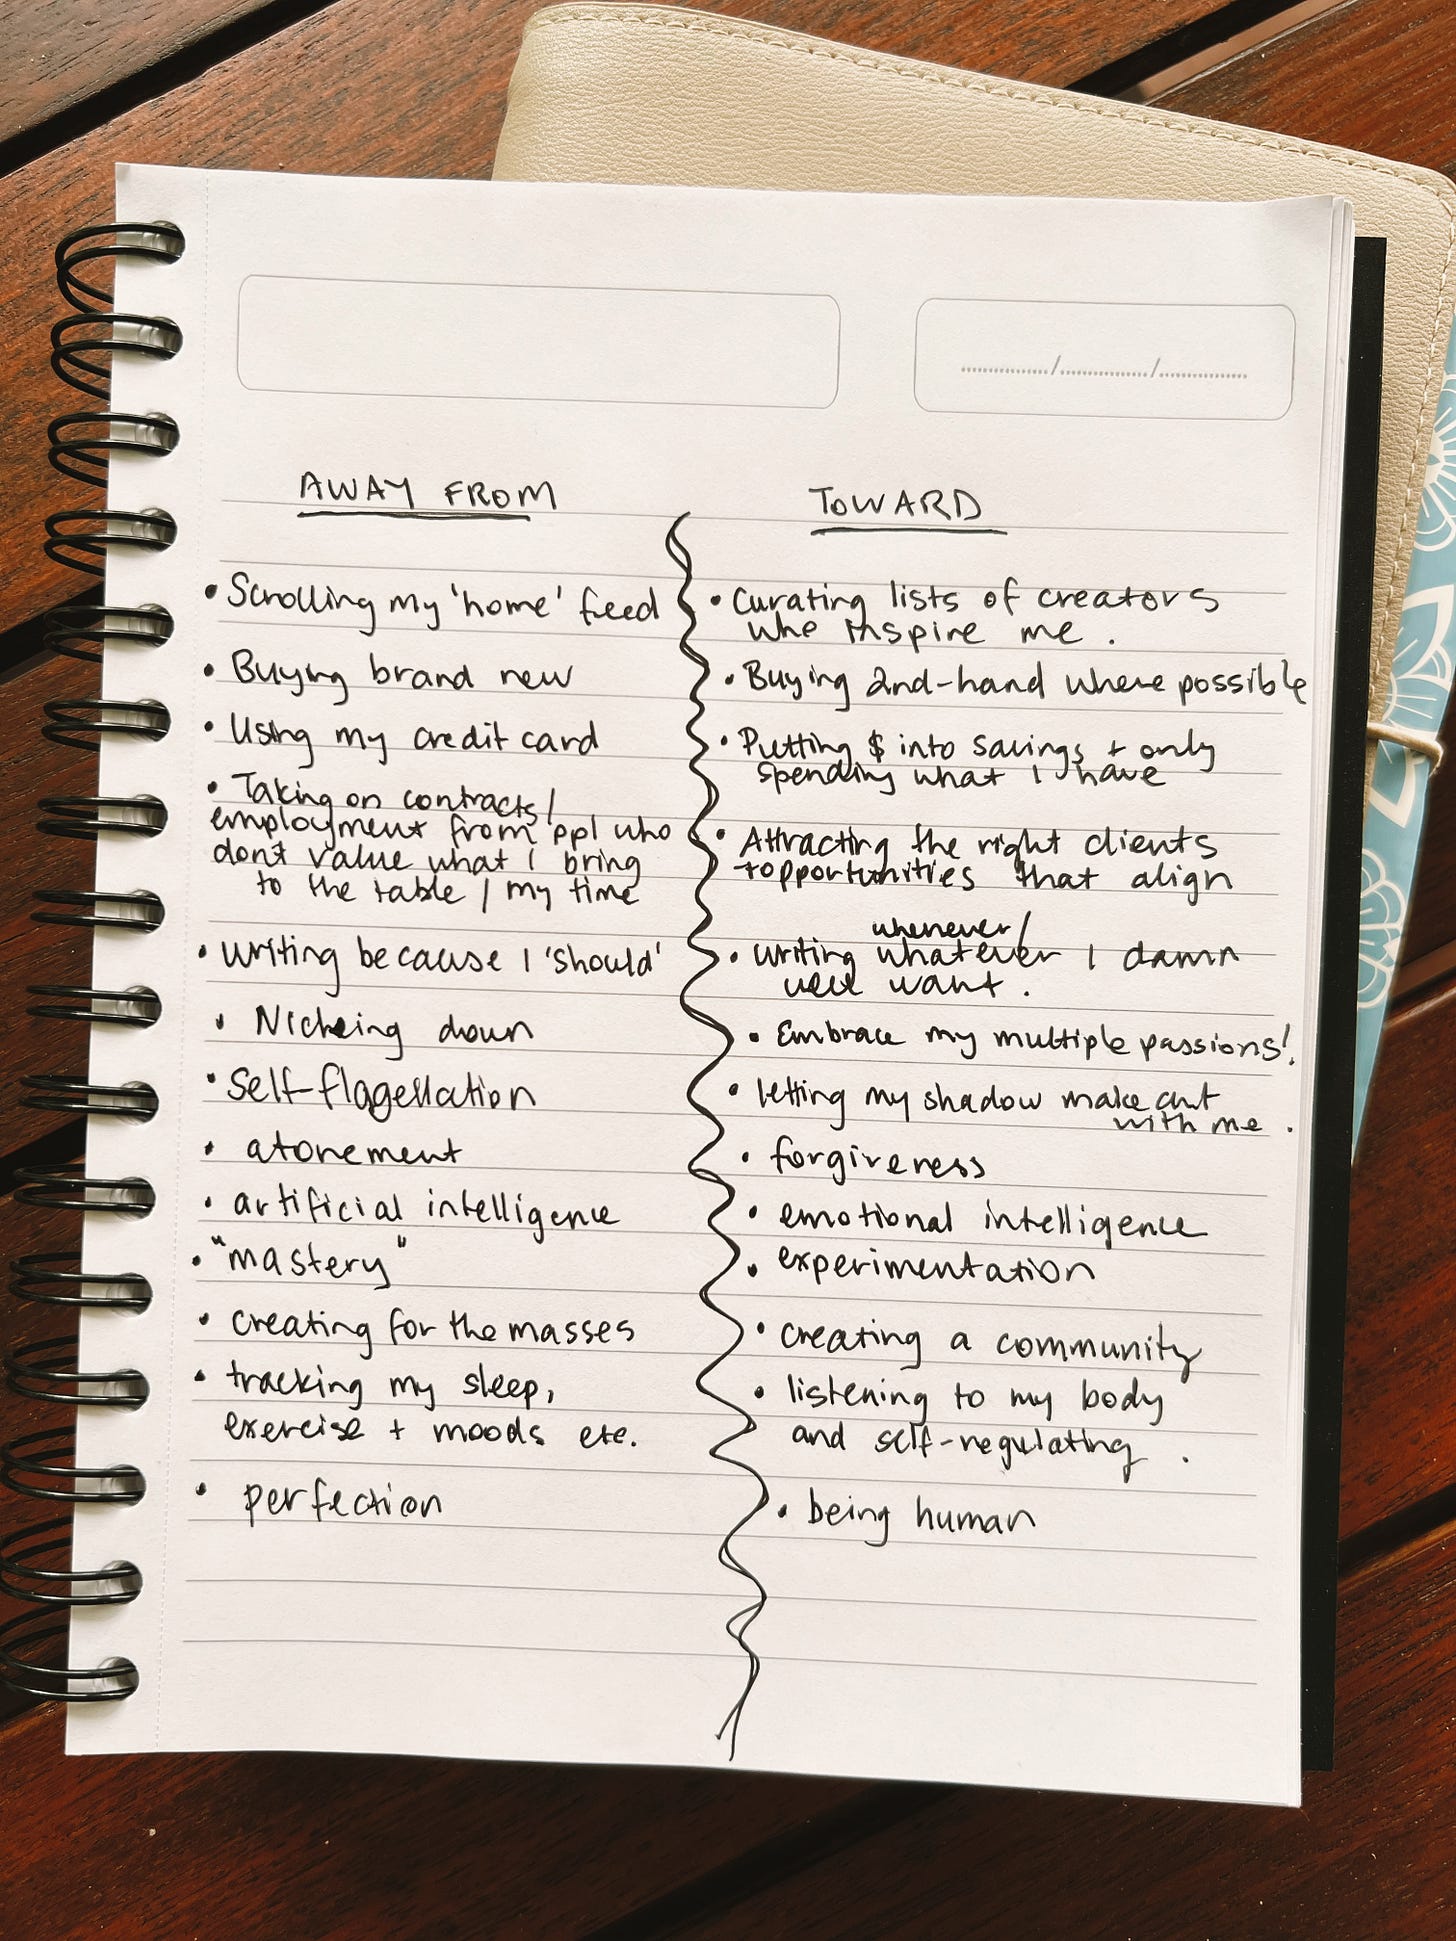 AWAY FROM
• Scrolling my 'home' feed
• Buying brand new
• Using my credit card
• Taking on contracts/
employment from ppl who
don't value what I bring
to the table / my time
• Writing because I 'should'
• Nicheing down
• Self-flagellation
• atonement
• artificial intelligence
• "mastery"
• creating for the masses
• tracking my sleep,
exercise + moods etc.
• perfection
TOWARD
• Curating lists of creators
who inspire me.
• Buying 2nd-hand where possible
• Putting $ into savings + only
spending what I have
• Attracting the right clients
+ opportunities that align
whenever/
• writing whatever I damn
well want.
• Embrace my multiple passions!
• letting my shadow make art
with me.
• forgiveness
• emotional intelligence
• experimentation
• creating a community
• listening to my body
and self-regulating.
• being human